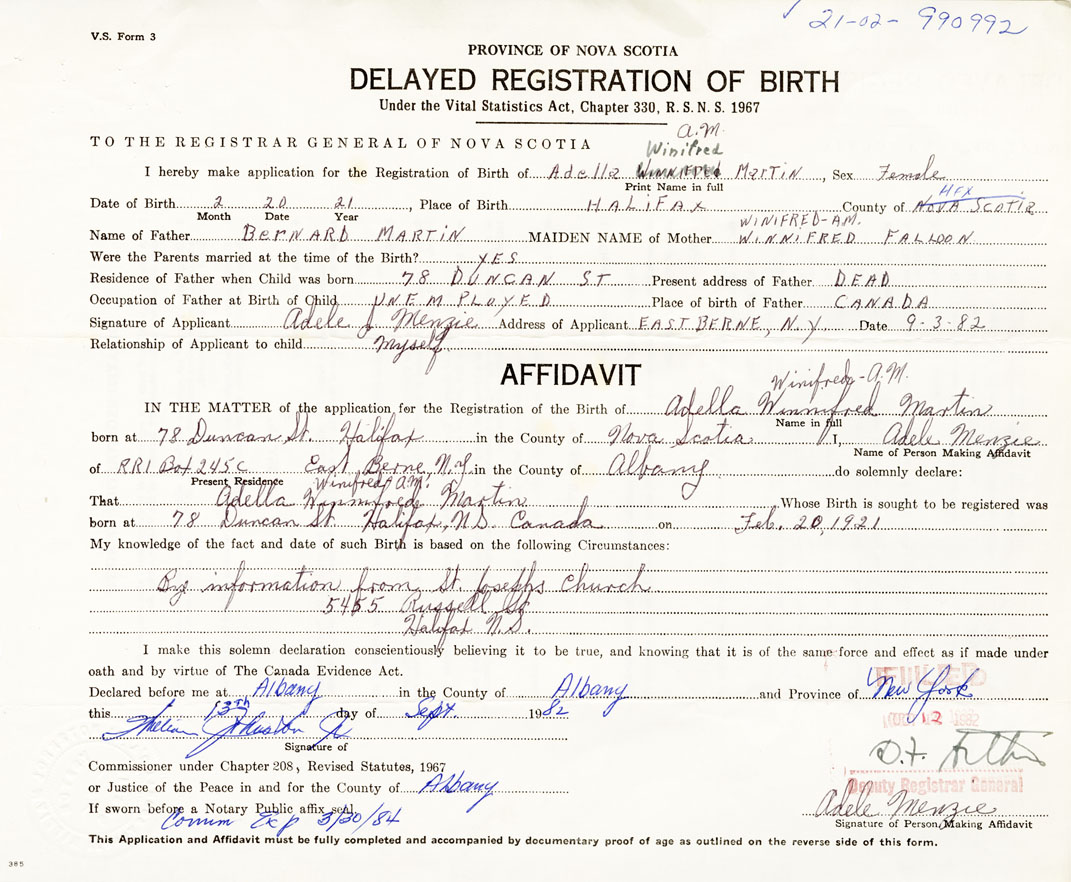 21-02-990992
V.S. Form 3
PROVINCE OF NOVA SCOTIA
DELAYED REGISTRATION OF BIRTH
Under the Vital Statistics Act, Chapter 330, R.S.N.S. 1967
A.M.
TO THE REGISTRAR GENERAL OF NOVA SCOTIA Winifred
I hereby make application for the Registration of Birth of Adella Martin, Sex Female
Print Name in full HFX
Date of Birth 2 20 21, Place of Birth HALIFAX County of NOVA SCOTIA
Month Date Year WINIFRED-AM.
Name of Father BERNARD MARTIN MAIDEN NAME of Mother WINNIFRED FALLOON
Were the Parents married at the time of the Birth? YES
Residence of Father when Child was born 78 DUNCAN ST Present address of Father DEAD
Occupation of Father at Birth of Child UNEMPLOYED Place of birth of Father CANADA
Signature of Applicant Adele J Menzie Address of Applicant EAST BERNE, N.Y Date 9-3-82
Relationship of Applicant to child myself
AFFIDAVIT
Winifred-A.M.
IN THE MATTER of the application for the Registration of the Birth of Adella Winnifred Martin
Name in full
born at 78 Duncan St. Halifax in the County of Nova Scotia I, Adele Menzie
Name of Person Making Affidavit
of RR1 Box 245C East Berne, N.Y. in the County of Albany do solemnly declare:
Present Residence Winifred A.M.
That Adella Winnifred Martin Whose Birth is sought to be registered was
born at 78 Duncan St. Halifax, N.S. Canada on Feb. 20, 1921
My knowledge of the fact and date of such Birth is based on the following Circumstances:
By information from St. Josephs Church
5455 Russell St
Halifax N.S.
I make this solemn declaration conscientiously believing it to be true, and knowing that it is of the same force and effect as if made under
oath and by virtue of The Canada Evidence Act.
FILED
Declared before me at Albany in the County of Albany and Province of New York
this 13th day of Sept. 1982
12 1982
Signature of
Commissioner under Chapter 208, Revised Statutes, 1967
or Justice of the Peace in and for the County of Albany
Deputy Registrar General
If sworn before a Notary Public affix seal Adele Menzie
Comm Exp 3/30/84
Signature of Person Making Affidavit
This Application and Affidavit must be fully completed and accompanied by documentary proof of age as outlined on the reverse side of this form.
385